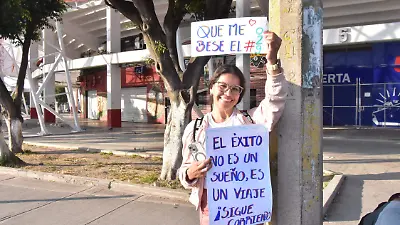 QUE ME
BESE EL #
EL ÉXITO
NO ES UN
SUEÑO, ES
UN VIAJE
¡SIGUE
CORRIENDO